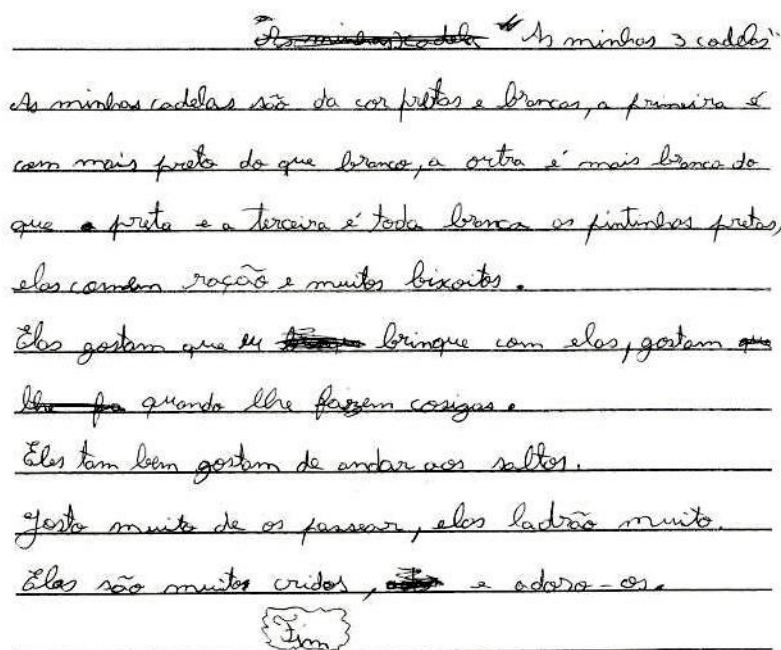 "As minhas 3 cadelas"
As minhas cadelas são da cor pretas e brancas, a primeira é
com mais preto do que branco, a outra é mais branca do
que preta e a terceira é toda branca as pintinhas pretas,
elas comem ração e muitos bixoitos.
Elas gostam que eu brinque com elas, gostam
quando lhe fazem cosigas.
Elas tam bem gostam de andar aos saltos.
Gosto muito de os passear, elas ladrão muito.
Elas são muitos cridos, e adoro-os.
Fim